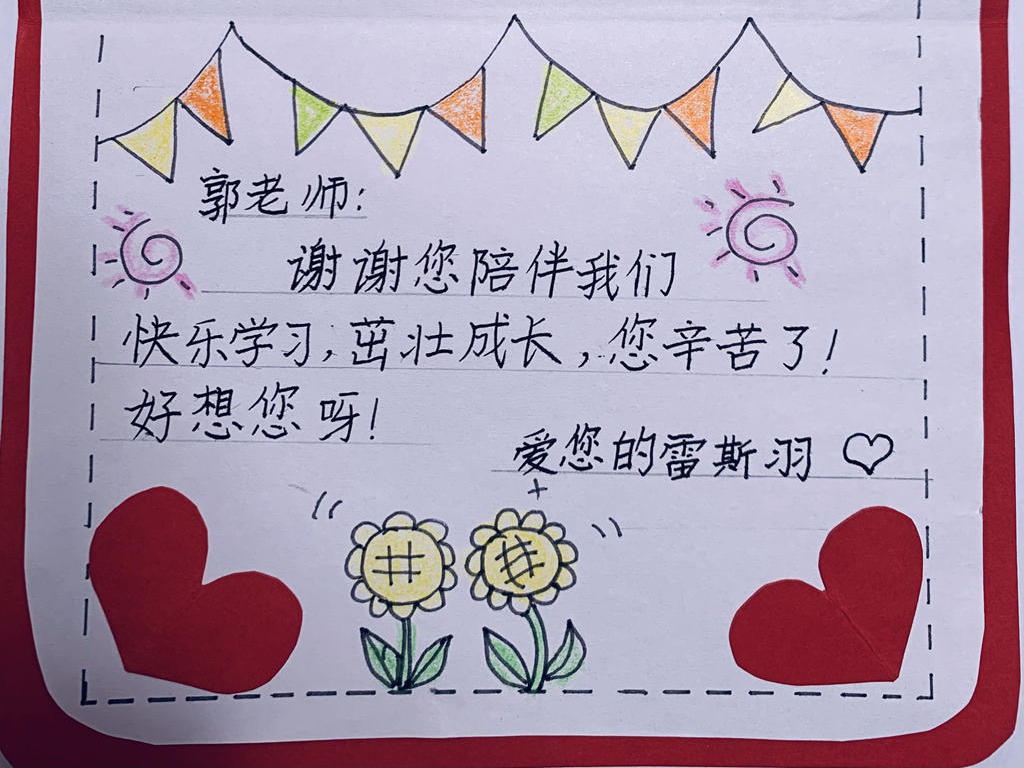 郭老师:
谢谢您陪伴我们
快乐学习,茁壮成长,您辛苦了!
好想您呀!
爱您的雷斯羽♡